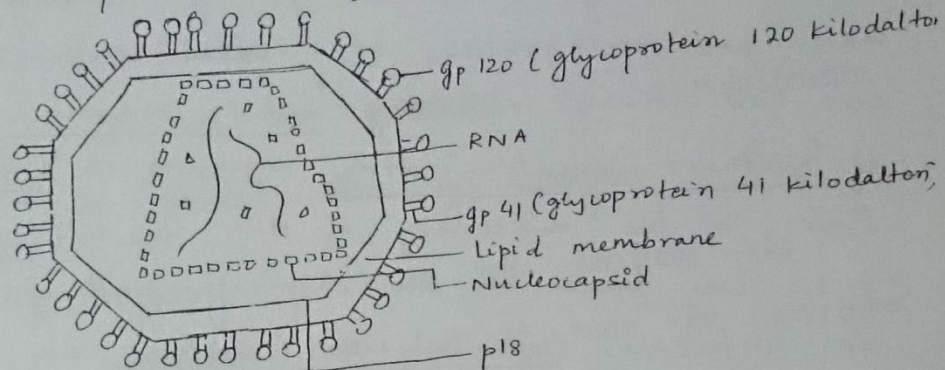 gp 120 (glycoprotein 120 kilodalton
RNA
gp 41 (glycoprotein 41 kilodalton)
Lipid membrane
Nucleocapsid
p18